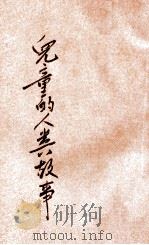 兒童的人类故事
mtoou.info